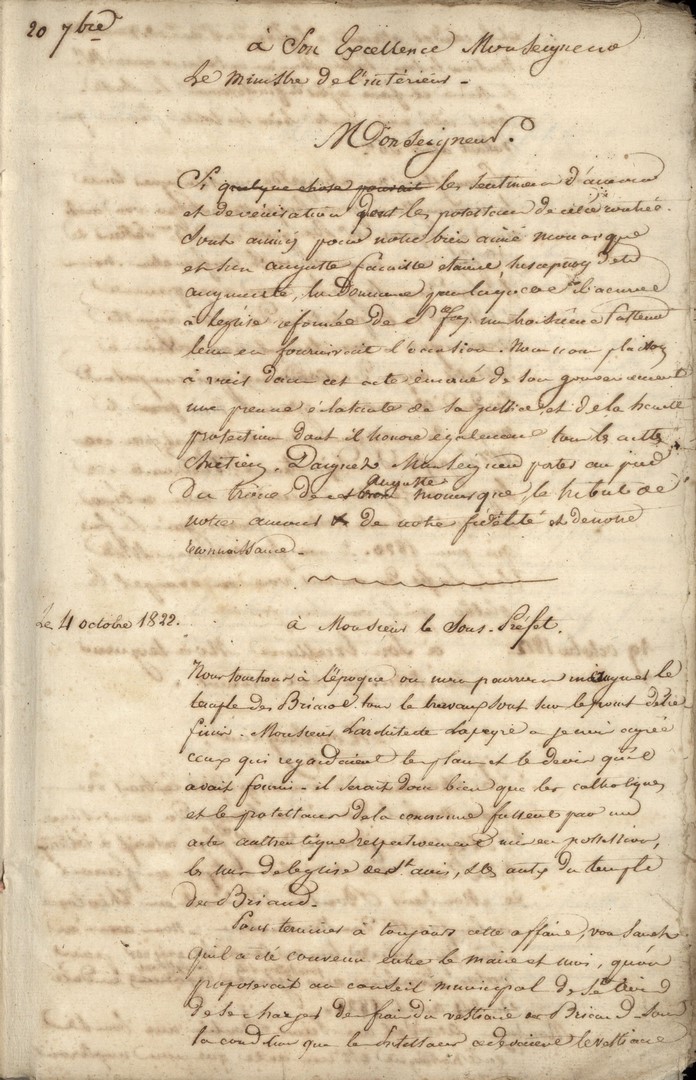 20 7bre
à Son Excellence Monseigneur
Le ministre de l'intérieur -
Monseigneur.
Si quelque chose pouvait les sentimens d'amour
et de vénération dont les protestans de cette contrée
sont animés pour notre bien aimé monarque
et son auguste famille étaient susceptibles
augmenté, la demande par laquelle il accorde
à l'église réformée de Ste foy un troisième Pasteur
leur en fournirait l'occasion. Nous nous plaisons
à voir dans cet acte émané de son gouvernement
une preuve éclatante de sa justice, et de la haute
protection dont il honore également tous les cultes
chrétiens. Daignez Monseigneur porter au pied
du trône de cet auguste monarque, le tribut de
notre amour & de notre fidélité et de notre
reconnaissance.
Le 4 octobre 1822.
à Monsieur le Sous-Préfet.
Nous touchons à l'époque ou nous pourrons inaugurer le
temple des Briand tous les travaux sont sur le point d'être
finis. Monsieur L'architecte Lapeyre a je crois agréé
ceux qui regardaient le plan et le devis qu'il
avait fourni - il serait donc bien que les catholiques
et les protestans de la commune fussent par un
acte authentique respectivement mis en possession,
les uns de l'église de St avis, les autres du temple
des Briand.
Pour terminer à toujours cette affaire, vous savez
qu'il a été convenu entre le maire et moi, qu'on
proposerait au conseil municipal de St avid
de se charger des frais du vestiaire des Briand sous
la condition que les protestans cederaient le vestiaire